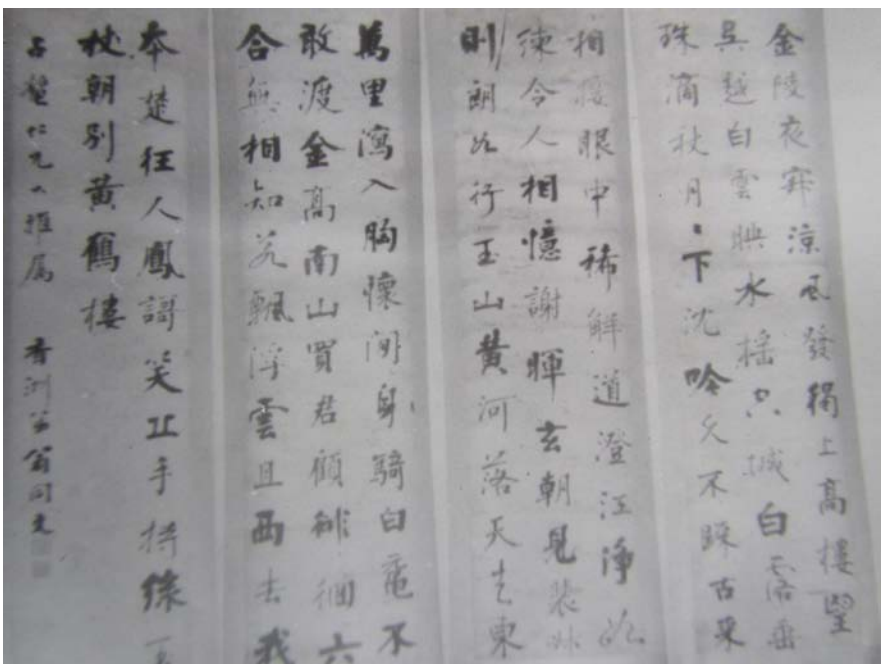 金陵夜寂涼風發獨上高樓望
吳越白雲映水搖空城白露垂
珠滴秋月〻下沈吟久不歸古來
相接眼中稀解道澄江淨如
練令人相憶謝暉玄朝見裴叔
則朗如行玉山黃河落天走東
萬里瀉入胸懷間身騎白黿不
敢渡金高南山買君顧徘徊六
合無相知若飄浮雲且西去我
本楚狂人鳳謌笑丘手持綠玉
杖朝別黃鶴樓
仁兄大雅屬 香洲弟翁同